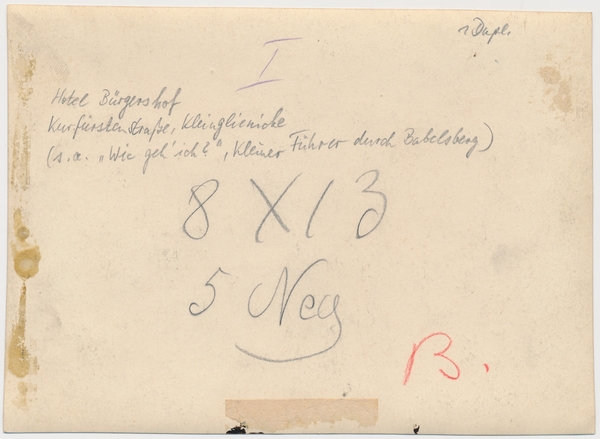 1 Dupl.
I
Hotel Bürgershof
Kurfürstenstraße, Kleinglienicke
(s.a. „Wie geh' ich?“, Kleiner Führer durch Babelsberg)
8 X 13
5 Neg
B.